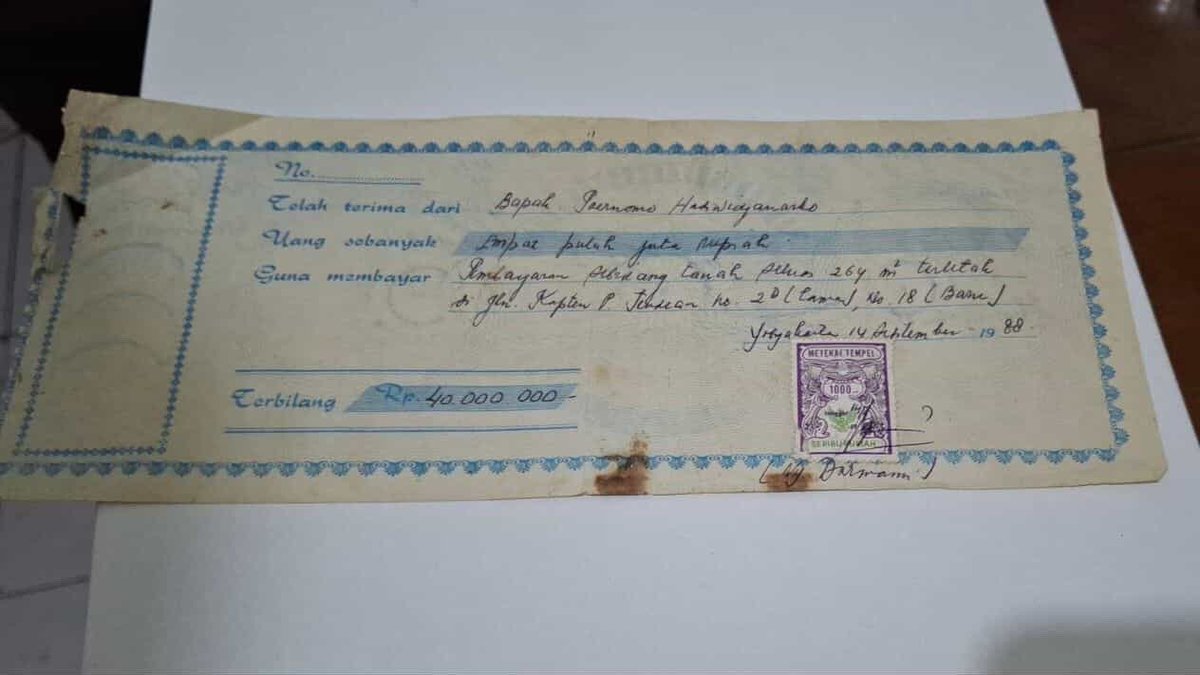 No.
Telah terima dari Bapak Poernomo Hadiwidjanarko
Uang sebanyak Empat puluh juta rupiah.
Guna membayar Pembayaran sebidang tanah seluas 264 m² terletak
di Jln. Kapten P. Tendean No. 2D (Lama), No. 18 (Baru)
Yogyakarta 14 September 1988
METERAI TEMPEL
1000
Terbilang Rp. 40.000.000-
SERIBU RUPIAH
Darmann)